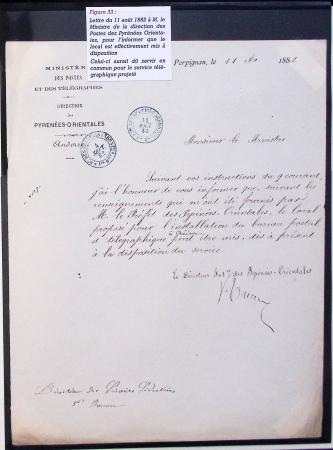 Figure 33 :
Lettre du 11 août 1882 à M. le
Ministre de la direction des
Postes des Pyrénées Orienta-
les, pour l'informer que le
local est effectivement mis à
disposition
Celui-ci aurait dû servir en
commun pour le service télé-
graphique projeté
MINISTÈRE
DES POSTES
ET DES TÉLÉGRAPHES
DIRECTION
des
PYRÉNÉES-ORIENTALES
Andorre
Perpignan, le 11 Ao 1882
Monsieur le Ministre
Suivant vos instructions du 9 courant,
j'ai l'honneur de vous informer que, suivant les
renseignements qui m'ont été fournis par
M. le Préfet des Pyrénées-Orientales, le local
proposé pour l'installation du bureau postal
et télégraphique peut être mis, dès à présent
à la disposition du service
Le Directeur des Pyrénées-Orientales
Direction des Services
1er Bureau